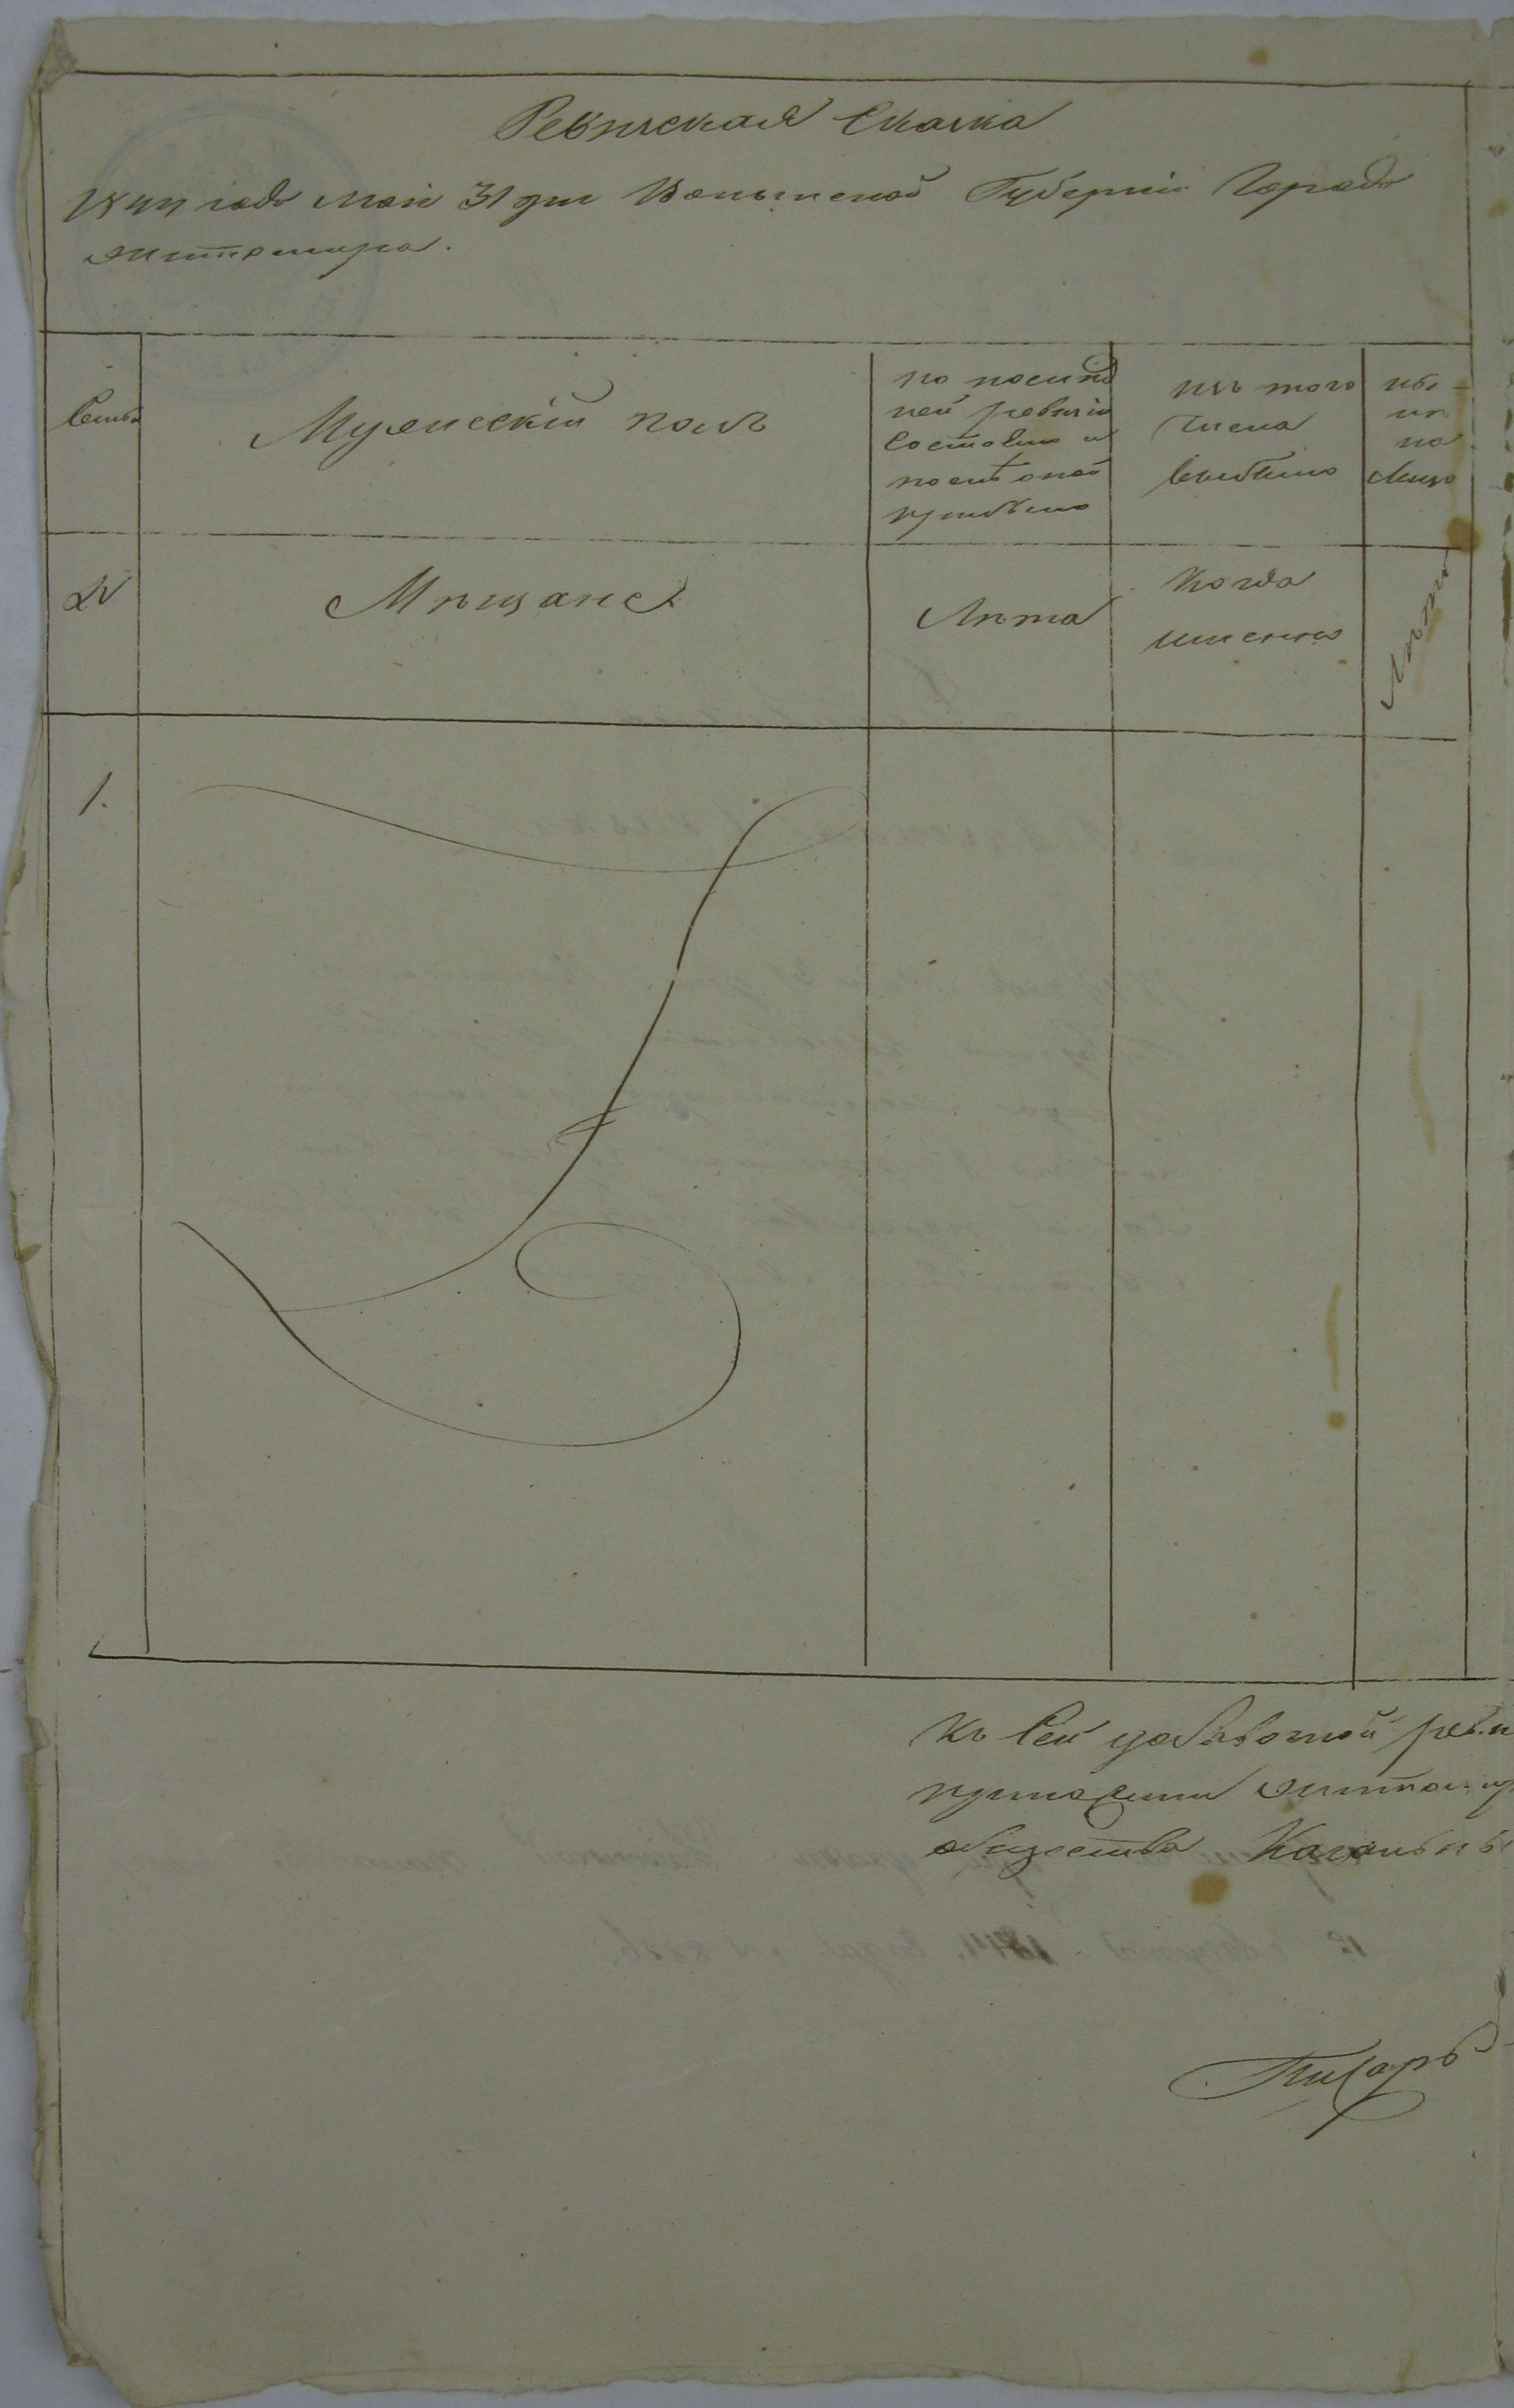 Ревизская Сказка
1844 года Маія 31 дня Волынской Губерніи Города
Житомира.
Семьи
Мужескій полъ
по послѣд
ней ревизіи
Состояло и
послѣ оной
прибыло
изъ того
числа
выбыло
ны-
нѣ
на
лицо
№
Мѣщане
Лѣта
Когда
именно
Лѣта
1.
Къ Сей добавочной реви
Житомир
общества Кагальны
Писарь